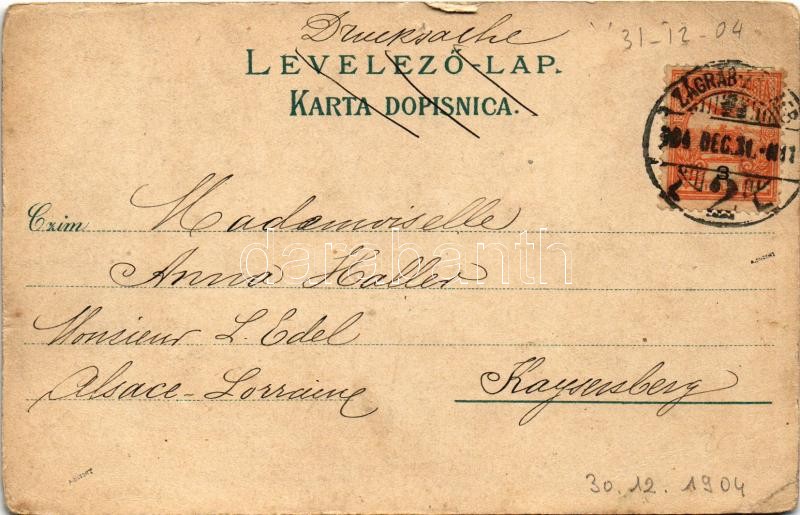 Drucksache
31-12-04
LEVELEZŐ-LAP.
KARTA DOPISNICA.
904 DEC. 31.
Czim Mademoiselle
Anna Haller
Monsieur L. Edel
Alsace-Lorraine
Kaysersberg
darabanth
30.12.1904